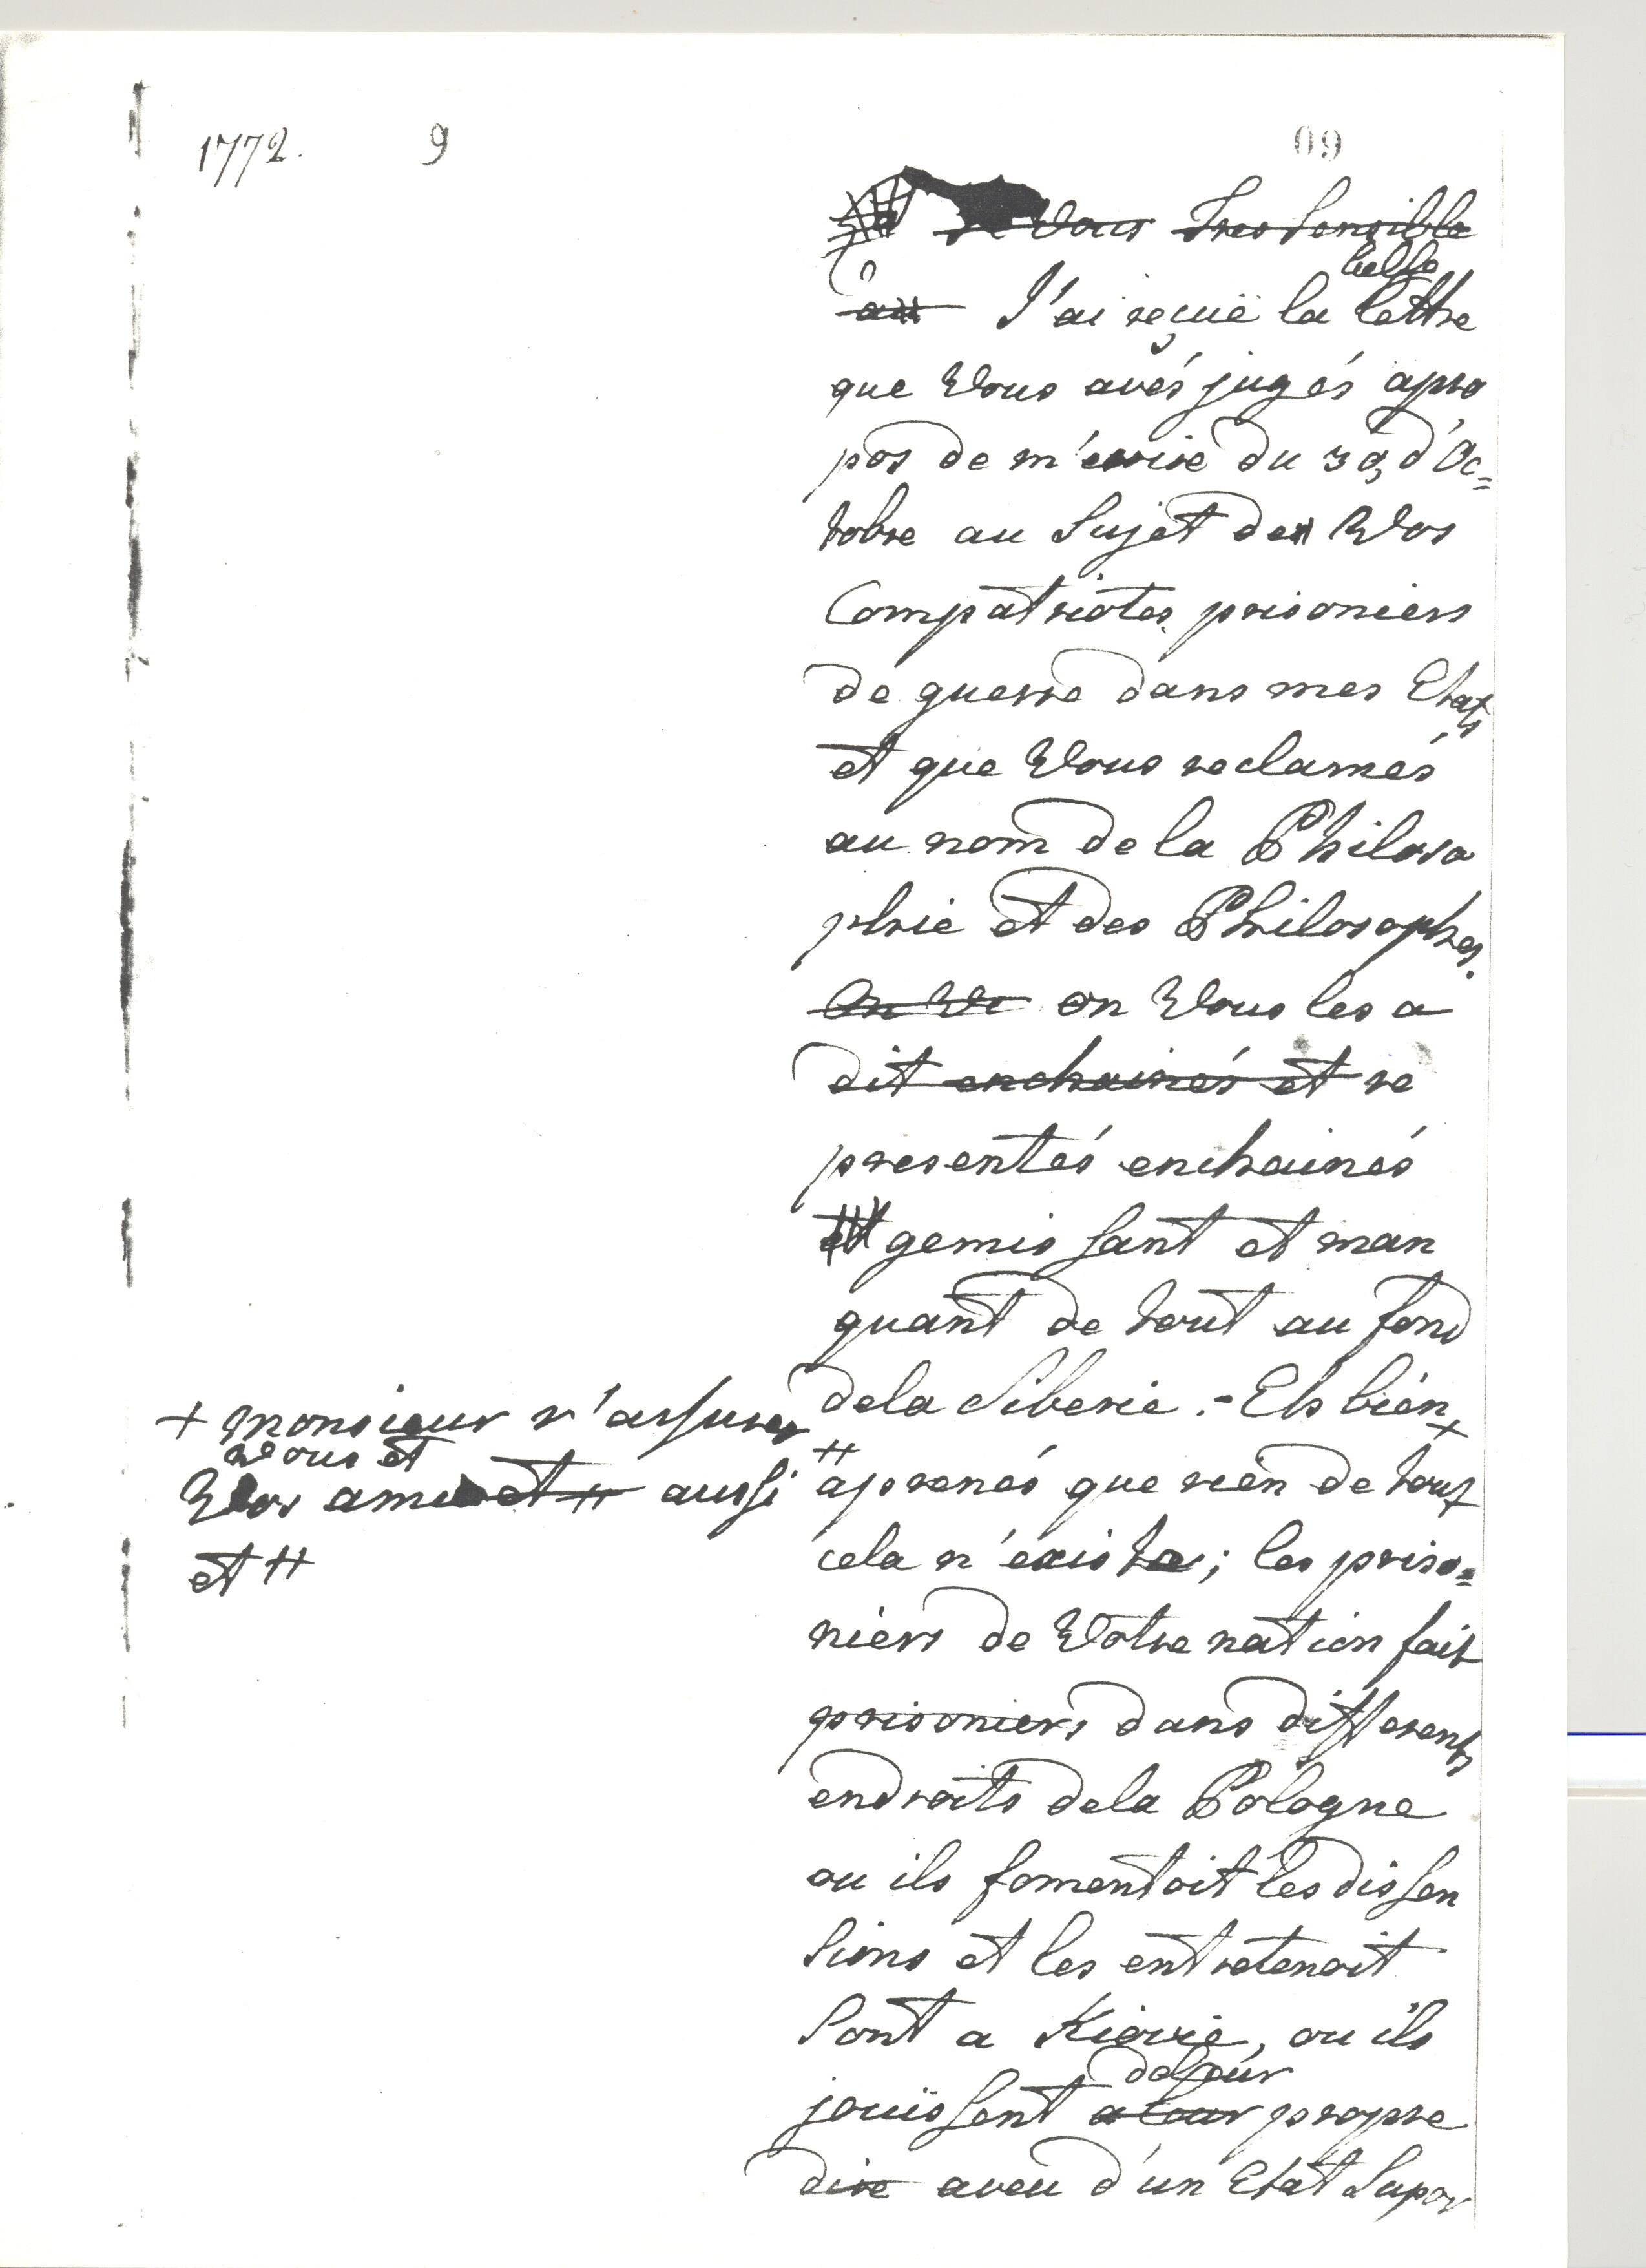 1772. 9
09
Vous tres sensible
belle
au J'ai reçuë la lettre
que Vous avés jugés apro
pos de m'ecrire du 30, d'Oc=
tobre au Sujet de Vos
Compatriotes prisoniers
de guerre dans mes Etats
et que Vous reclamés
au nom de la Philoso
phie et des Philosophes.
On Vo on Vous les a
dit enchainés et re
presentés enchainés
et gemissant et man
quant de tout au fond
dela Siberie. - Eh bien +
+ monsieur r'assurer
vous et
Vos amis et ++ aussi
et ++
++ aprenés que rien de tout
cela n'existe; les priso=
niers de Votre nation fait
prisoniers dans differents
endroits dela Pologne
ou ils fomentoit les dissen
sions et les entretenoit
Sont a Kiovie, ou ils
de leur
jouissent a leur propre
dire aveu d'un Etat Supor